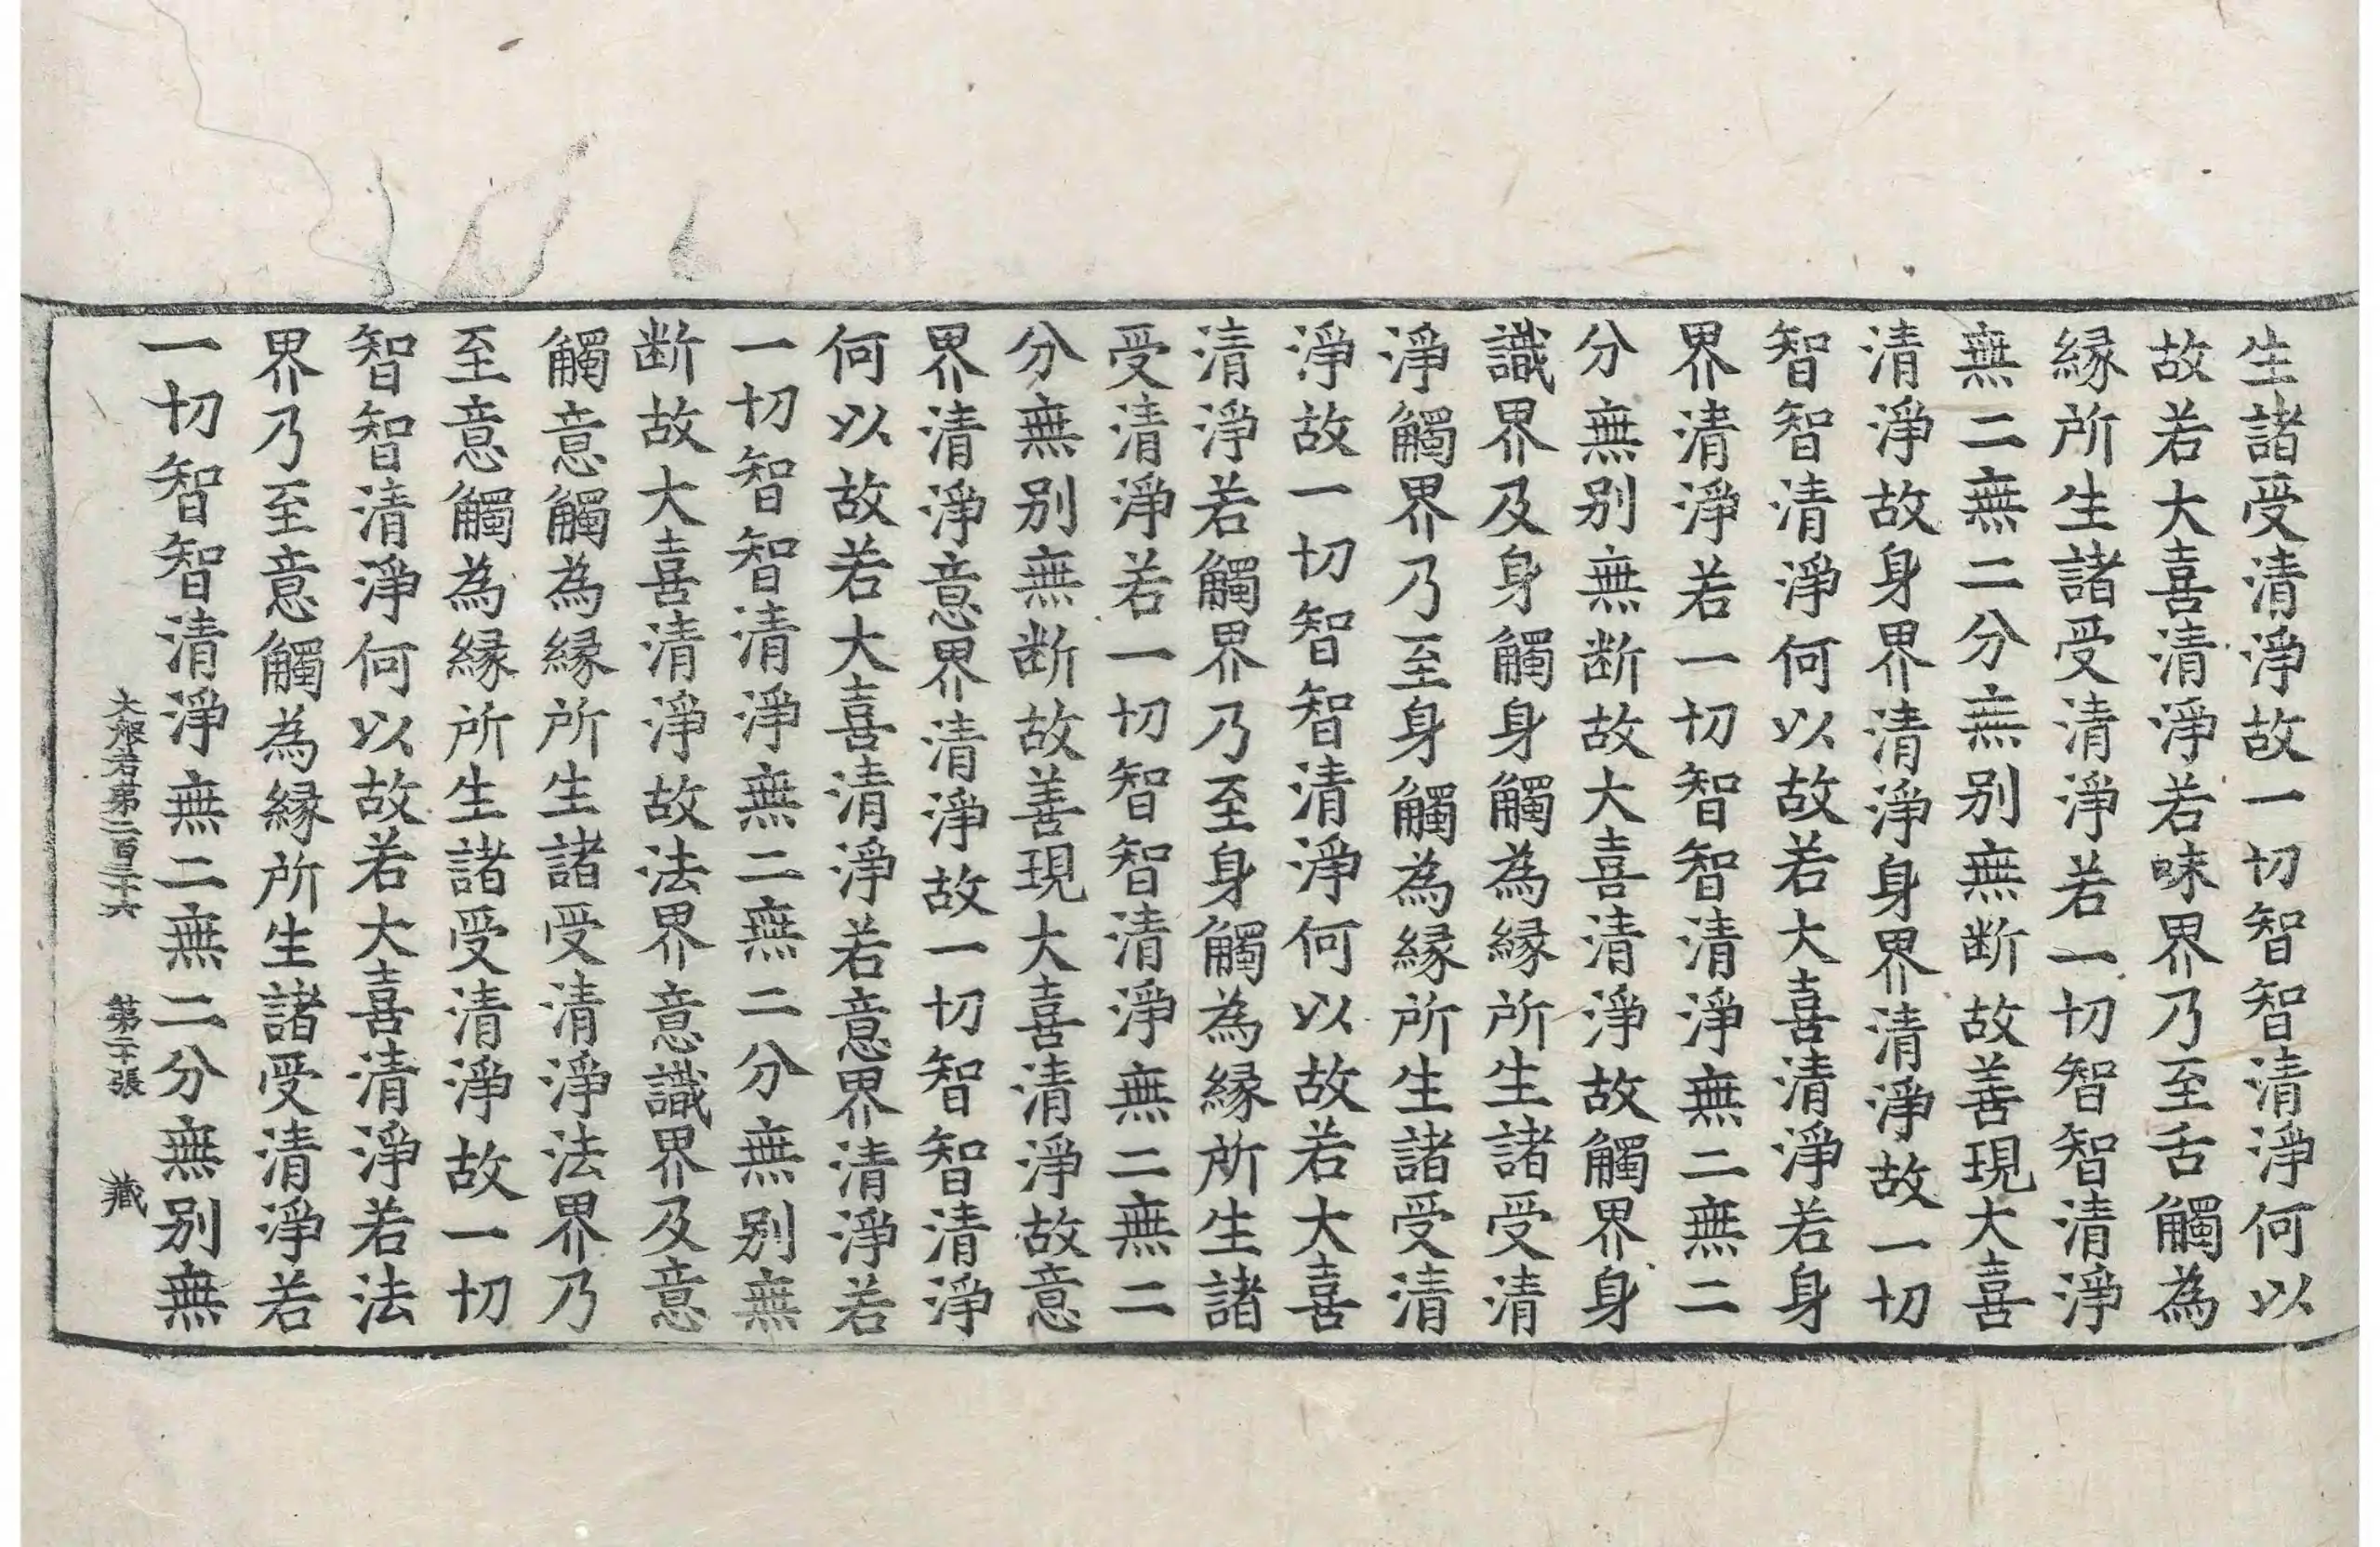 生諸受清淨故一切智智清淨何以
故若大喜清淨若味界乃至舌觸為
緣所生諸受清淨若一切智智清淨
無二無二分無别無断故善現大喜
清淨故身界清淨身界清淨故一切
智智清淨何以故若大喜清淨若身
界清淨若一切智智清淨無二無二
分無别無断故大喜清淨故觸界身
識界及身觸身觸為緣所生諸受清
淨觸界乃至身觸為緣所生諸受清
淨故一切智智清淨何以故若大喜
清淨若觸界乃至身觸為緣所生諸
受清淨若一切智智清淨無二無二
分無别無断故善現大喜清淨故意
界清淨意界清淨故一切智智清淨
何以故若大喜清淨若意界清淨若
一切智智清淨無二無二分無别無
断故大喜清淨故法界意識界及意
觸意觸為緣所生諸受清淨法界乃
至意觸為緣所生諸受清淨故一切
智智清淨何以故若大喜清淨若法
界乃至意觸為緣所生諸受清淨若
一切智智清淨無二無二分無别無
大般若第二百三十六 第二十張 藏